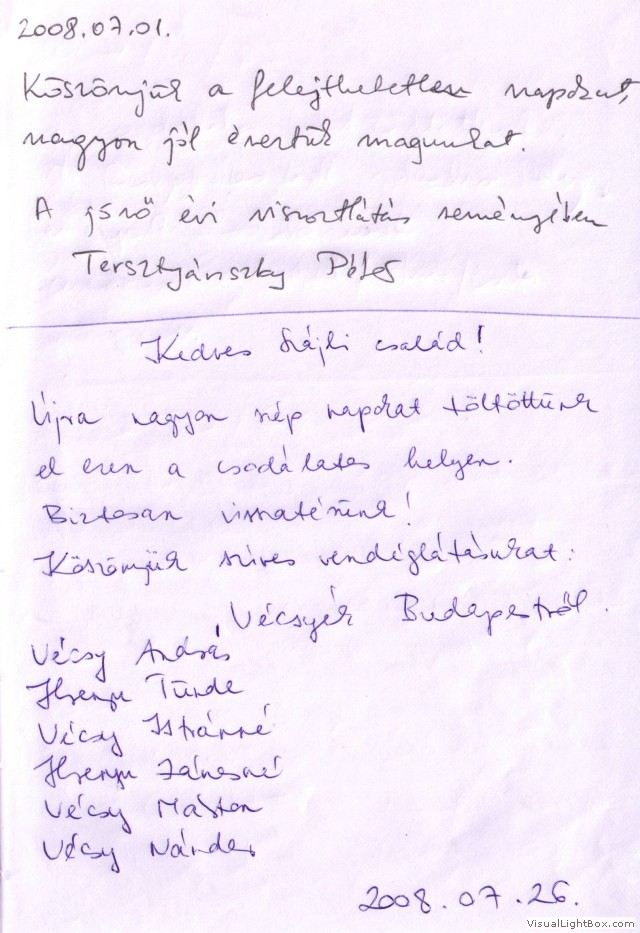 2008.07.01.
Köszönjük a felejthetetlen napokat,
nagyon jól éreztük magunkat.
A jövő évi viszontlátás reményében
Tersztyánszky
Kedves család!
Újra nagyon szép napokat töltöttünk
el ezen a csodálatos helyen.
Biztosan visszatérünk!
Köszönjük szíves vendéglátásukat:
Vécsyék Budapestről.
Vécsy András
Tünde
Vécsy Istvánné
Jánosné
Vécsy Márton
Vécsy Nándor
2008.07.26.
VisualLightBox.com